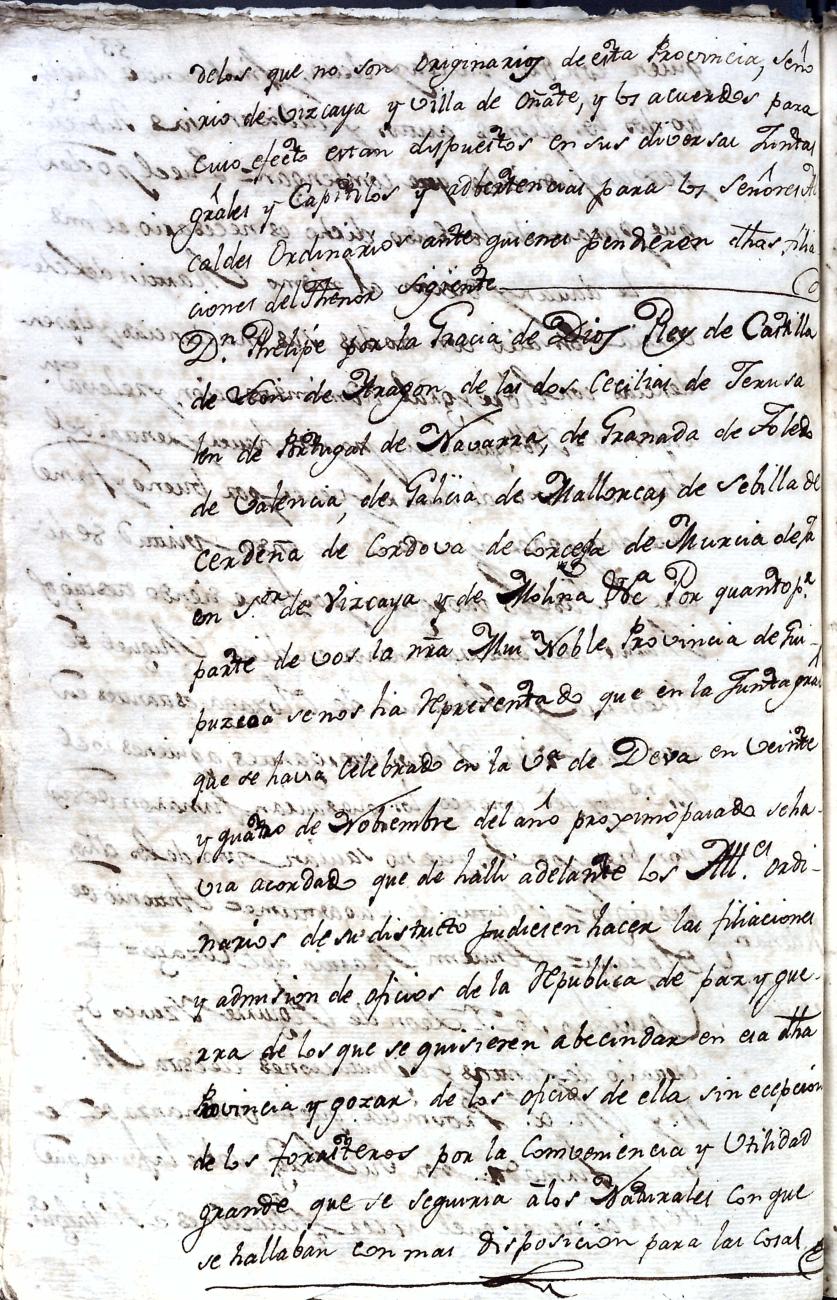 delos que no son Originarios de esta Provincia, seño
rio de vizcaya y villa de oñate, y los acuerdos para
cuio efecto estan dispuestos en sus diversas Juntas
grãles y Capitulos y adbertencias para los señores Al
caldes Ordinarios ante quienes pendieren dhas filia
ciones del Thenor sigiente
Dn. Phelipe por la Gracia de Dios Rey de Castilla
de Leon de Aragon de las dos Cecilias de Jerusa
len de Portugal de Navarra, de Granada de Toledo
de Valencia, de Galiçia de Mallorcas de Sebilla de
Cerdeña de Cordova de Corcega de Murcia de Ja
en Sor. de Vizcaya y de Molina &ca Por quanto pr.
parte de vos la nrã Mui Noble Provincia de Gui-
puzcoa senos ha Representado que en la Junta grãl
que se havia Celebrado en la Va de Deva en veinte
y quatro de Nobiembre del año proximo pasado seha-
via acordado que de halli adelante los Alles. ordi-
narios de su districto pudiesen hacer las filiaciones
y admision de oficios de la Republica de paz y gue-
rra de los que se quisieren abecindar en esa dha
Provincia y gozar de los oficios de ella sin ecepcion
de los forasteros por la Comveniencia y Utilidad
grande que se seguiria a los Naturales con que
se hallaban con mas disposicion para las cosas